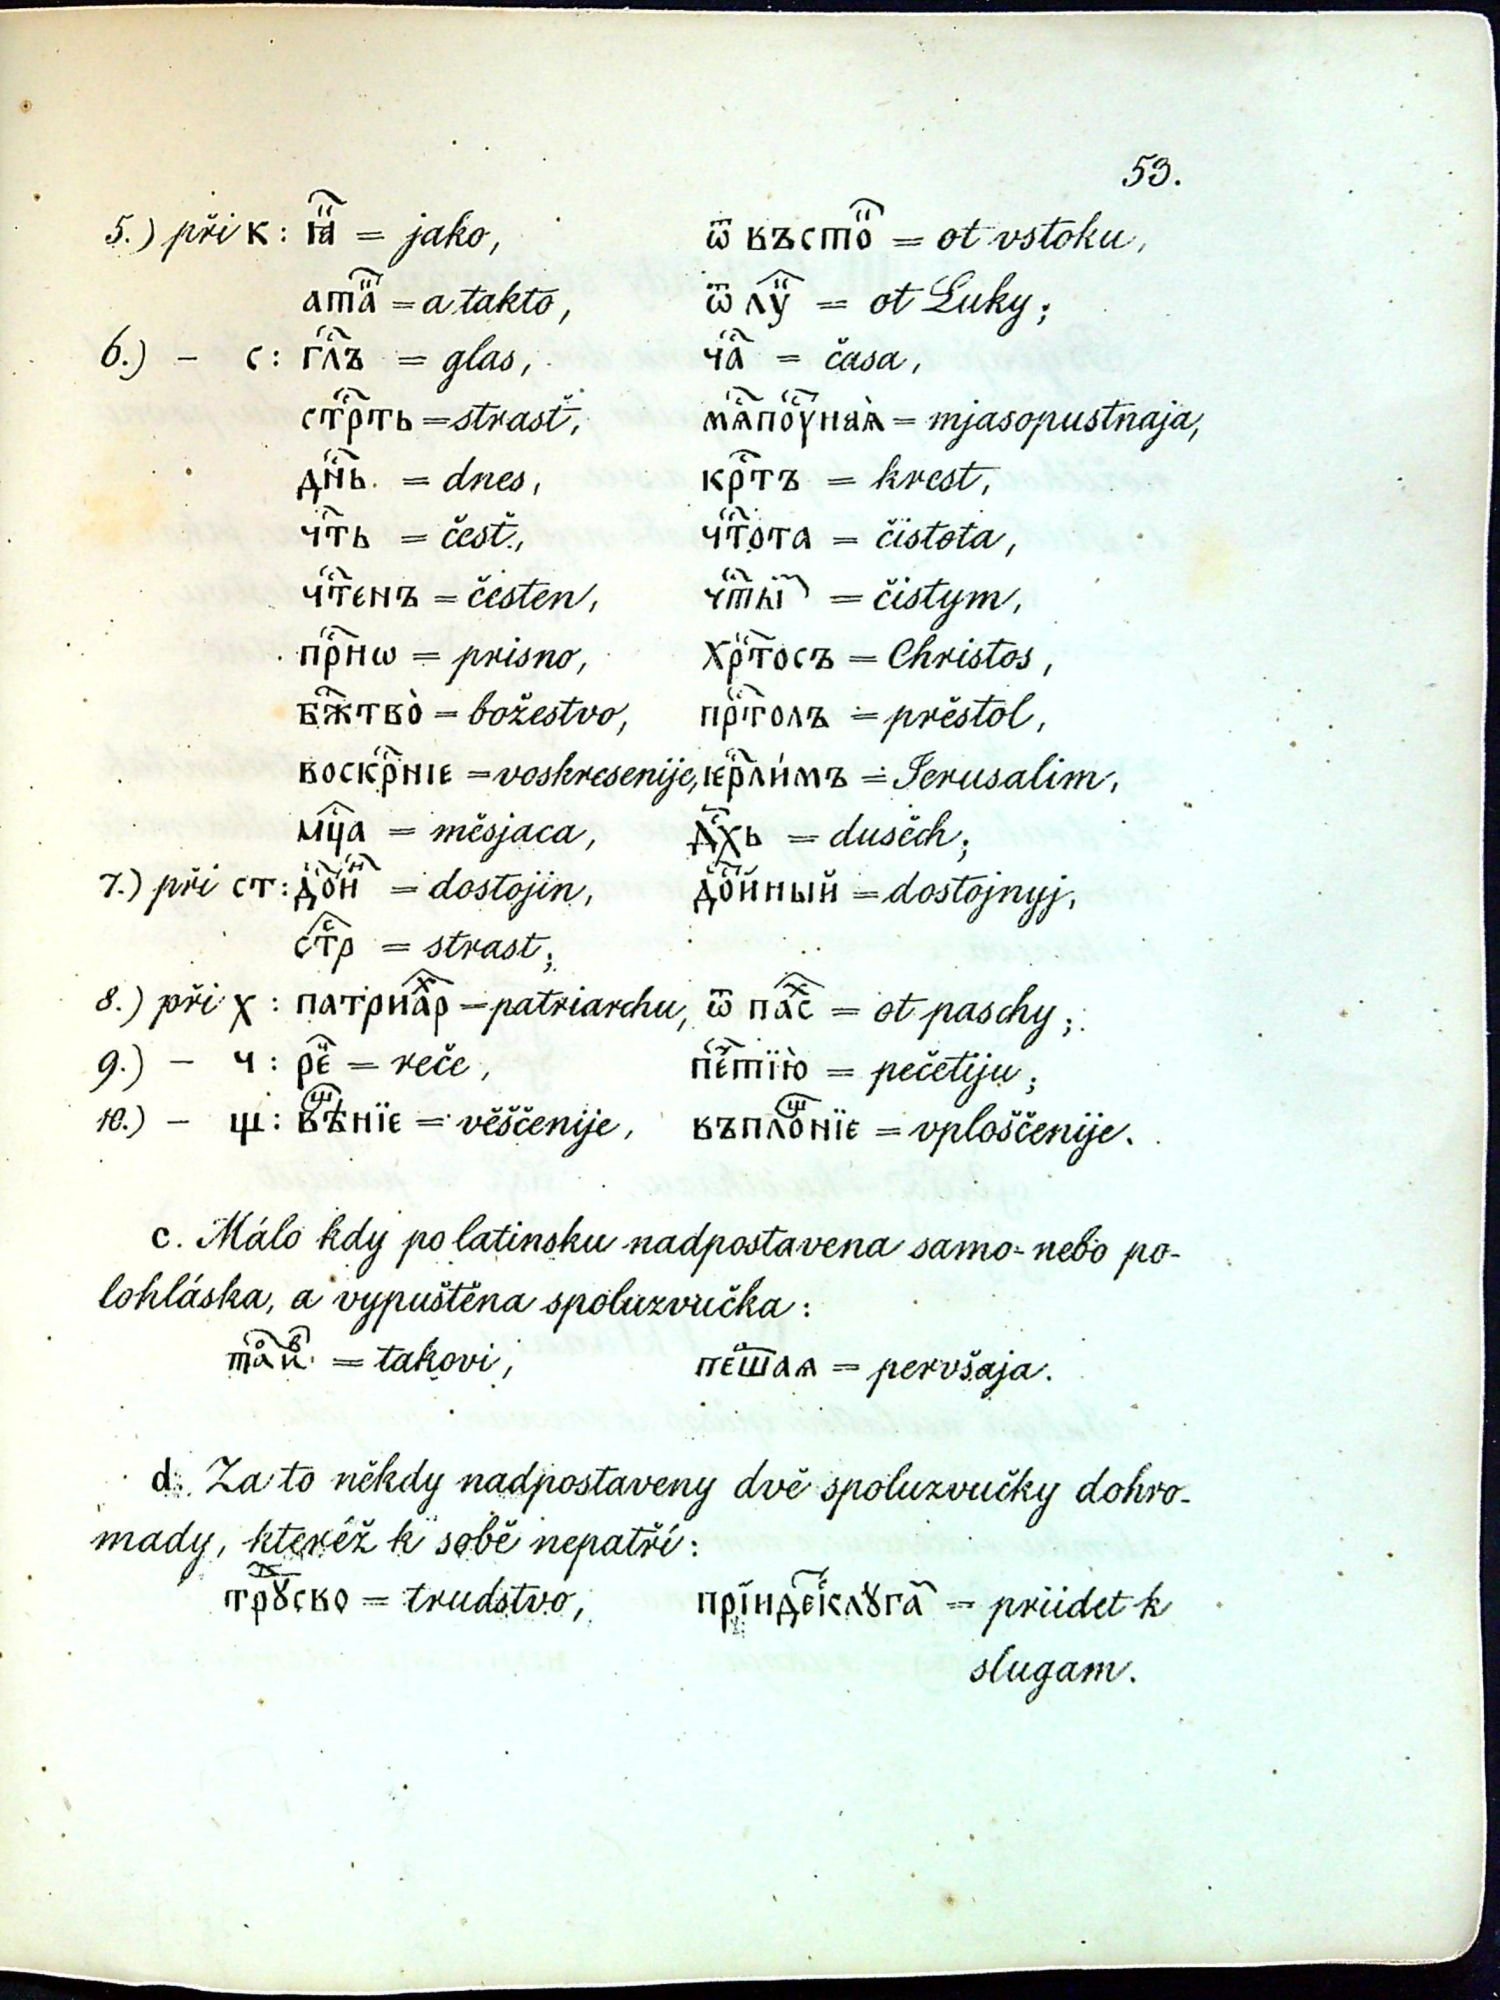 53.
5.) při к: ꙗ҃ = jako, ѿ въсто҃ = ot vstoku,
ата҃ = a takto, ѿ лꙋ҃ = ot Luky;
6.) – с: гл҇ъ = glas, ча҇ = časa,
стр҇ть = strasť, мѧ҇поѹ҇наѧ̀ = mjasopustnaja,
дн҇ь = dnes, кр҇тъ = krest,
ч҇ть = česť, ч҇тота = čistota,
ч҇тенъ = česten, ч҇ты҃ = čistym,
пр҇нѡ = prisno, хр҇тосъ = Christos,
бж҇тво̀ = božestvo, пр҇толъ = prěstol,
воскр҇нıе = voskresenije, ıер҇ли́мъ = Jerusalim,
мц҇а = měsjaca, д҇хь = dusěch;
7.) při ст: до҇нⷩ = dostojin, до҇йный = dostojnyj,
стⷭр = strast;
8.) při х: патриаⷯр = patriarchu, ѿ паⷯс = ot paschy;
9.) – ч: реⷱ = reče, пе҇тїю̀ = pečetiju;
10.) – щ: вѣⷳнїе = věščenije, въплоⷳнїе = vploščenije.
c. Málo kdy po latinsku nadpostavena samo- nebo po-
lohláska, a vypuštěna spoluzvučka:
таⷪиⷡ = takovi, пе҃шаѧ = pervšaja.
d. Za to někdy nadpostaveny dvě spoluzvučky dohro-
mady, kteréž k sobě nepatří:
трꙋ҃ско = trudstvo, прıиде҃кслꙋга҃ = priidet k
slugam.